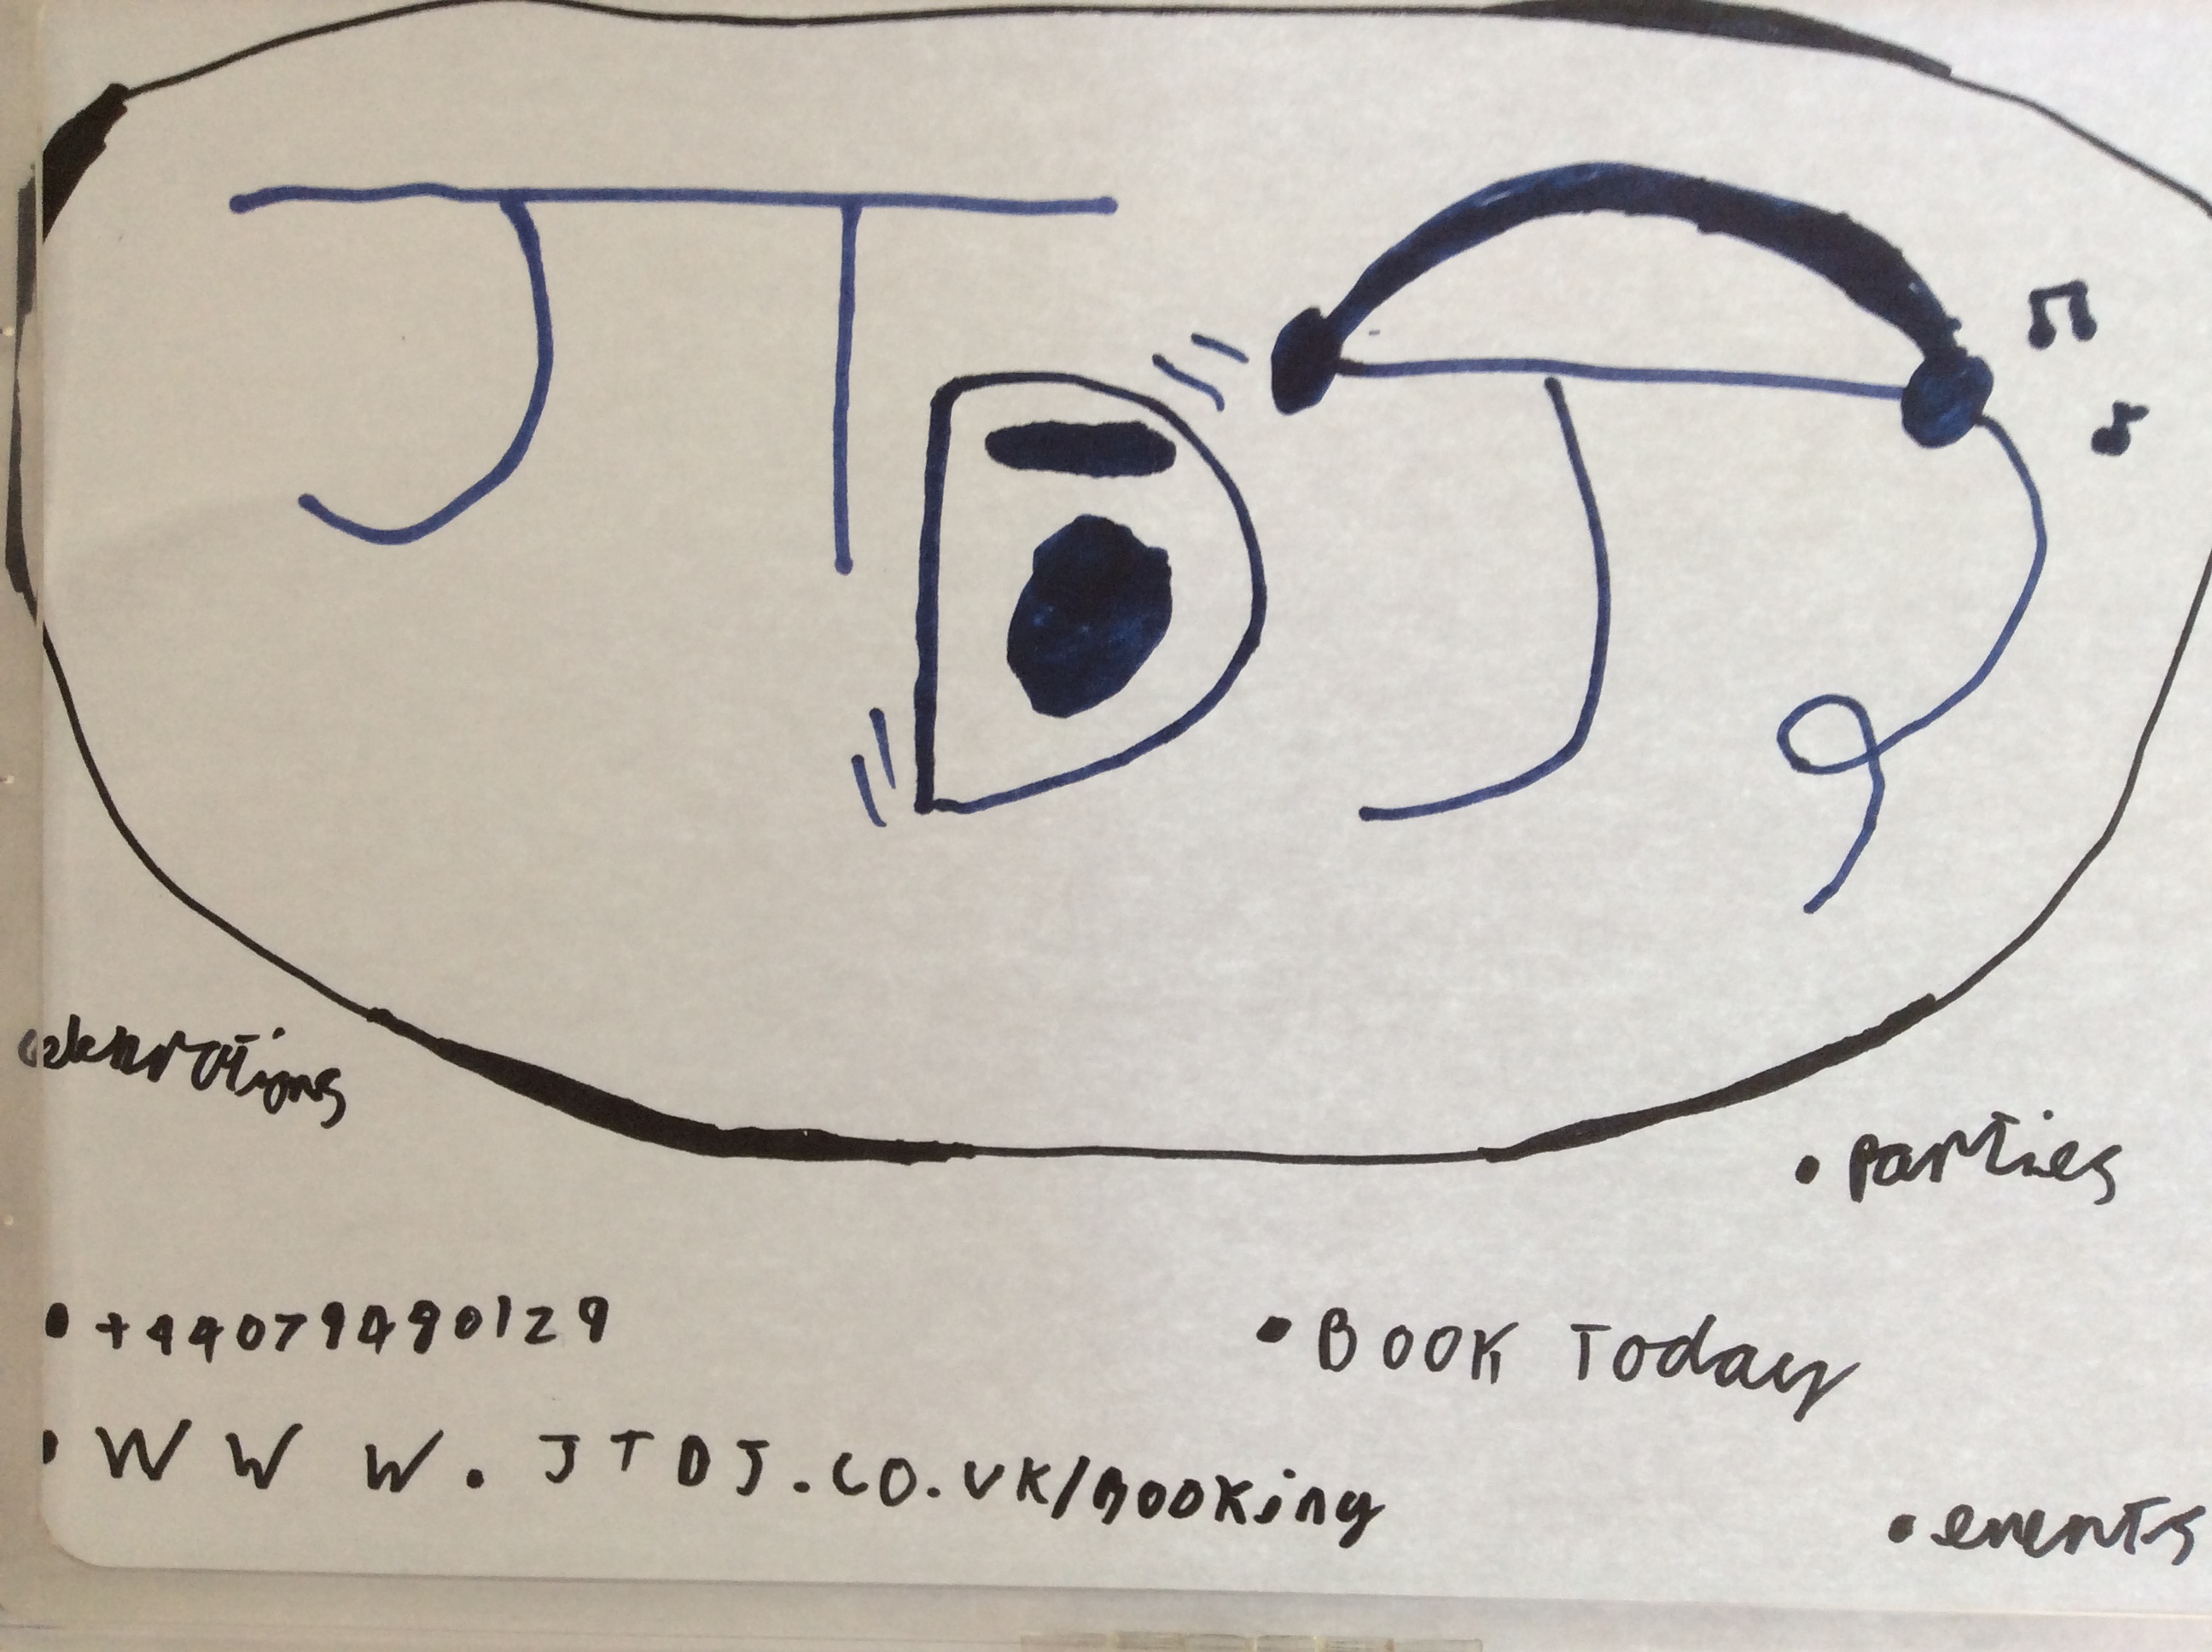 JT DJ
celebrations
• parties
• +44079490129
• BOOK Today
• WWW.JTDJ.CO.UK/Booking
• events